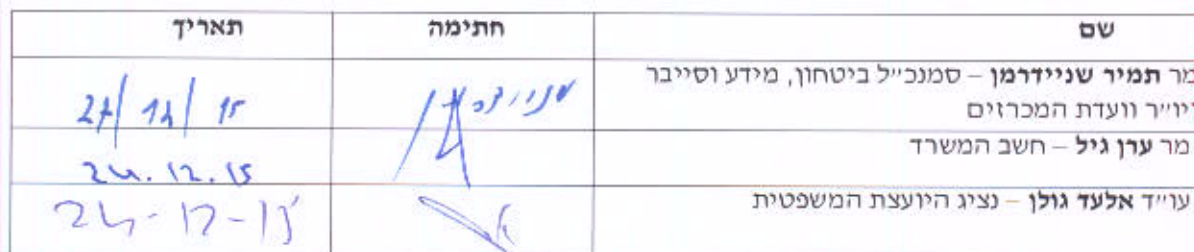 שם חתימה תאריך
מר תמיר שניידרמן – סמנכ״ל ביטחון, מידע וסייבר
ויו״ר וועדת המכרזים
27/12/15
מר ערן גיל – חשב המשרד
24.12.15
עו״ד אלעד גולן – נציג היועצת המשפטית
24-12-15